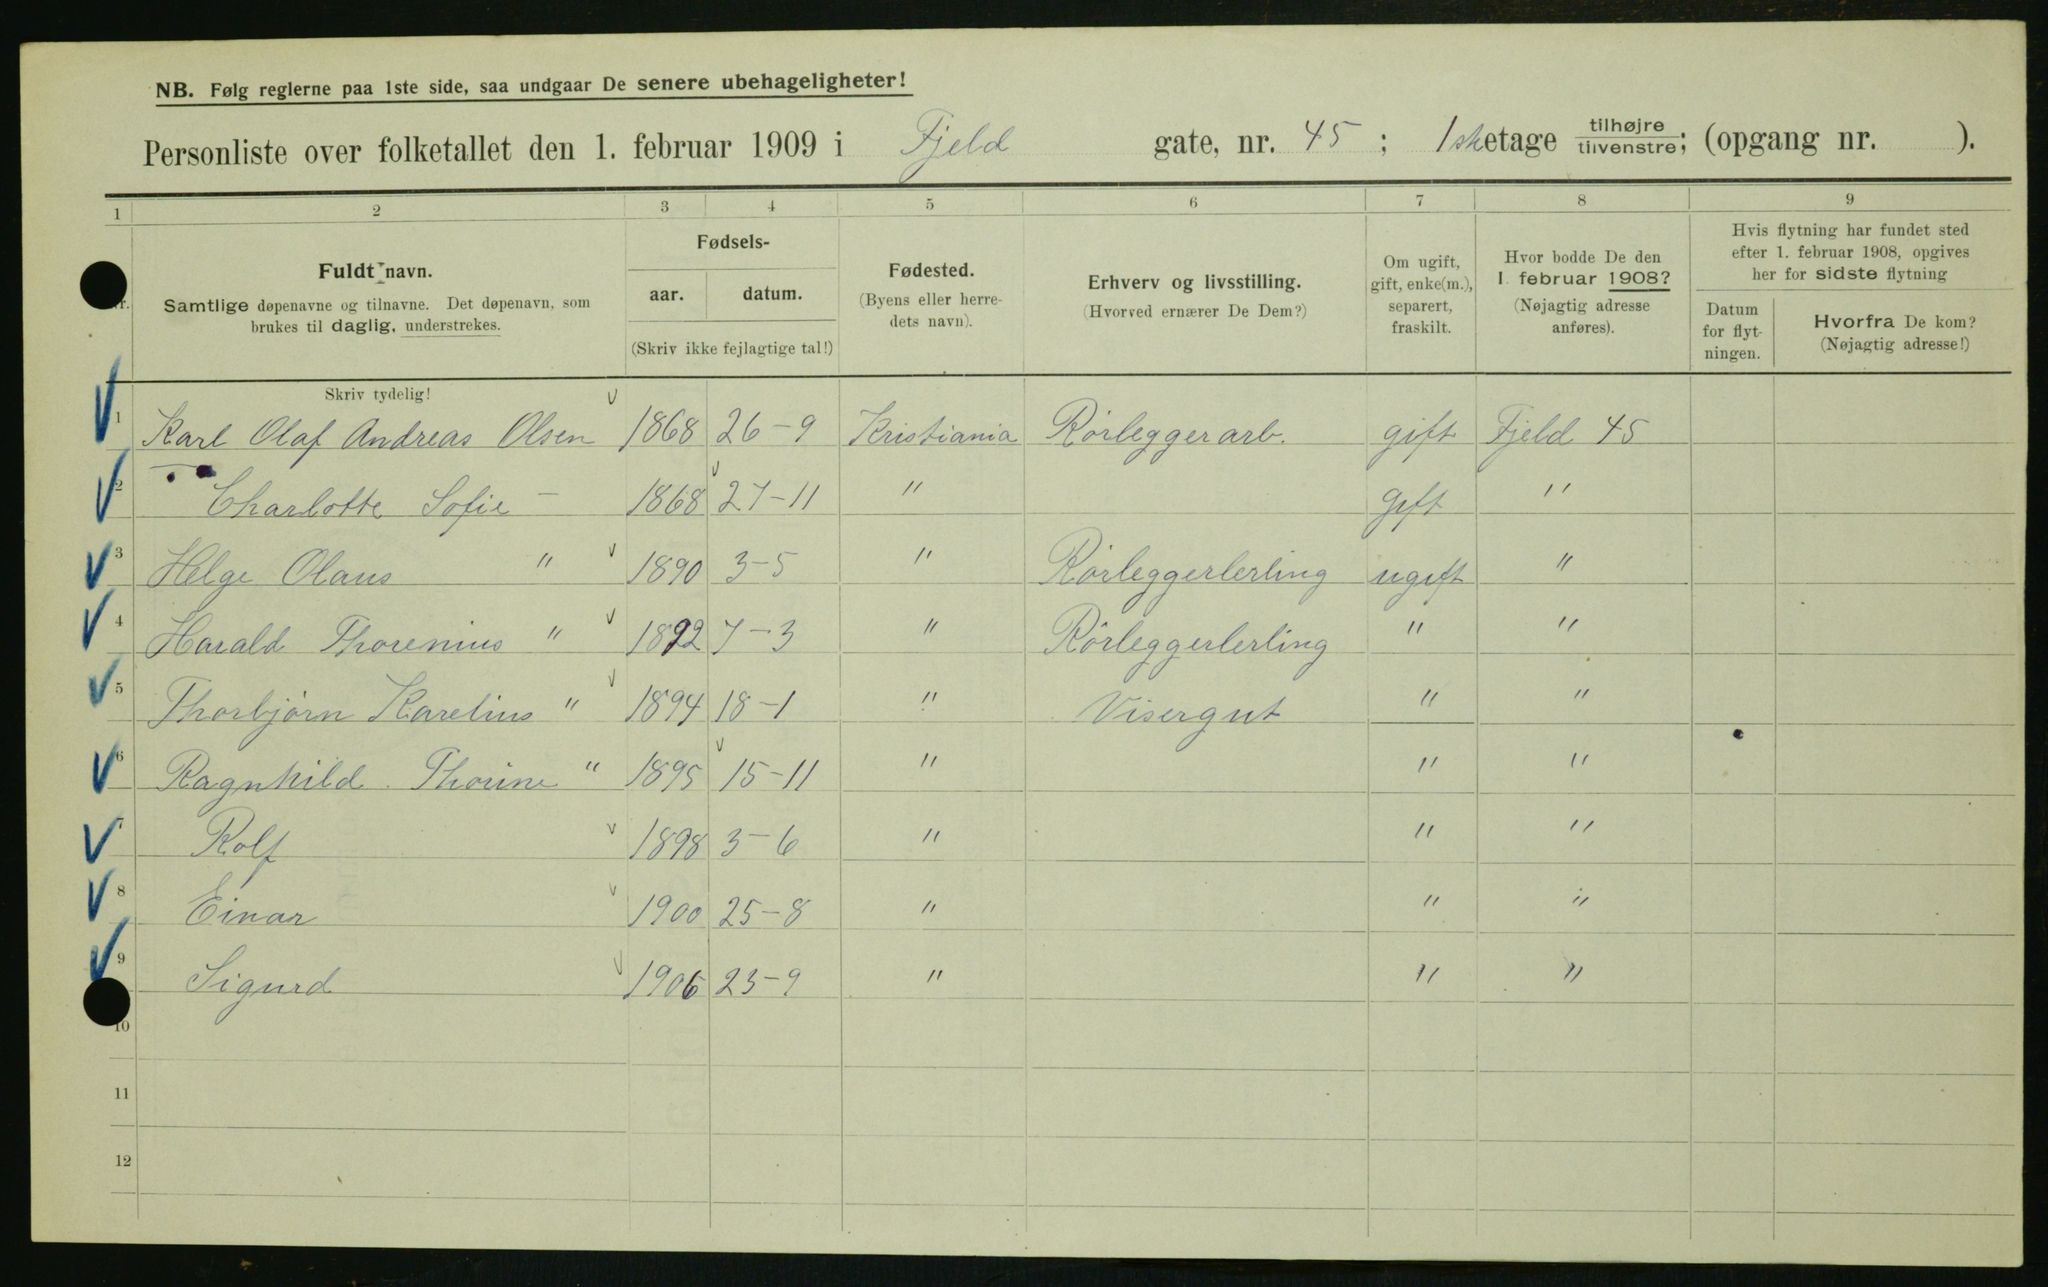 NB. Følg reglerne paa 1ste side, saa undgaar De senere ubehageligheter!
Personliste over folketallet den 1. februar 1909 i Fjeld gate, nr. 45 ; 1ste etage tilhøjre / tilvenstre; (opgang nr. ).
1 2 3 4 5 6 7 8 9
Nr.
Fuldt navn.
Samtlige døpenavne og tilnavne. Det døpenavn, som
brukes til daglig, understrekes.
Fødsels-
aar. datum.
(Skriv ikke fejlagtige tal!)
Fødested.
(Byens eller herre-
dets navn).
Erhverv og livsstilling.
(Hvorved ernærer De Dem?)
Om ugift,
gift, enke(m.),
separert,
fraskilt.
Hvor bodde De den
1. februar 1908?
(Nøjagtig adresse
anføres).
Hvis flytning har fundet sted
efter 1. februar 1908, opgives
her for sidste flytning
Datum
for flyt-
ningen.
Hvorfra De kom?
(Nøjagtig adresse!)
Skriv tydelig!
1 Karl Olaf Andreas Olsen 1868 26-9 Kristiania Rörleggerarb. gift Fjeld 45
2 Charlotte Sofie – 1868 27-11 " gift "
3 Helge Olaus " 1890 3-5 " Rörleggerlerling ugift "
4 Harald Thorenius " 1892 7-3 " Rörleggerlerling " "
5 Thorbjörn Karelius " 1894 18-1 " Visergut " "
6 Ragnhild Thorine " 1895 15-11 " " "
7 Rolf 1898 3-6 " " "
8 Einar 1900 25-8 " " "
9 Sigurd 1906 23-9 " " "
10
11
12